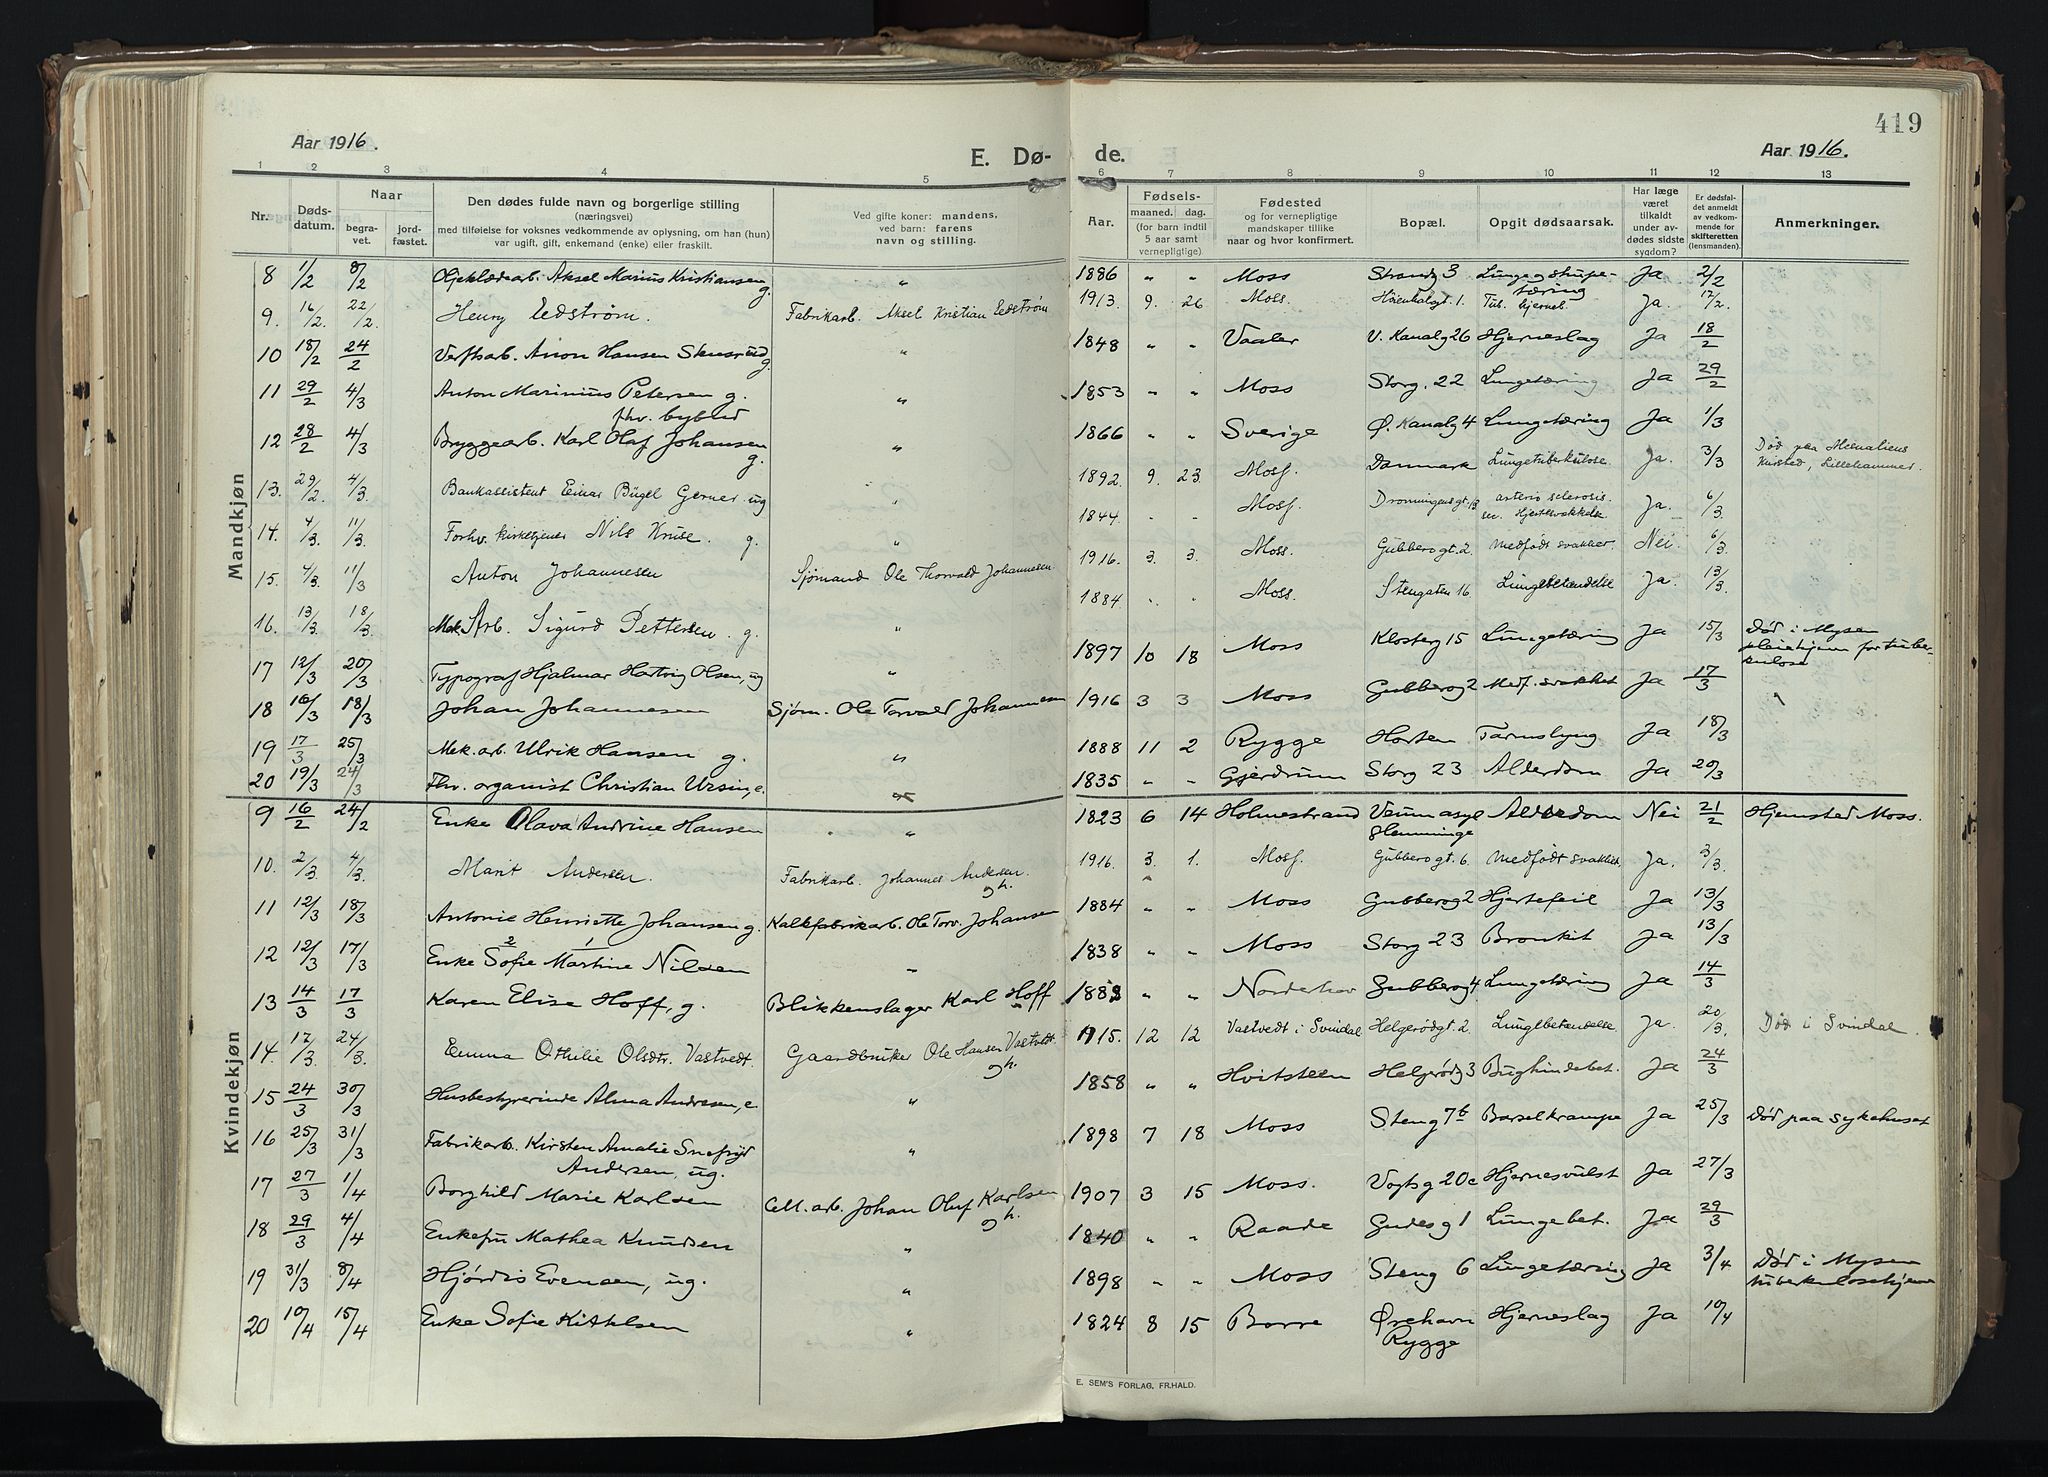 419
Aar 1916.
E. Dø-
de.
Aar 1916.
1 2 3 4 5 6 7 8 9 10 11 12 13
Nr.
Døds-
datum.
Naar
begra-
vet.
jord-
fæstet.
Den dødes fulde navn og borgerlige stilling
(næringsvei)
med tilføielse for voksnes vedkommende av oplysning, om han (hun)
var ugift, gift, enkemand (enke) eller fraskilt.
Ved gifte koner: mandens,
ved barn: farens
navn og stilling.
Aar.
Fødsels-
maaned. dag.
(for barn indtil
5 aar samt
vernepligtige)
Fødested
og for vernepligtige
mandskaper tillike
naar og hvor konfirmert.
Bopæl.
Opgit dødsaarsak.
Har læge
været
tilkaldt
under av-
dødes sidste
sygdom?
Er dødsfal-
det anmeldt
av vedkom-
mende for
skifteretten
(lensmanden).
Anmerkninger.
Mandkjøn
8 1/2 8/2 Oljeklædearb. Aksel Marius Kristiansen g. " 1886 " " Moss Strandg 3 Lunge og strupe-
tæring Ja 2/2
9. 16/2. 22/2. Henry Eedstrøm. Fabrikarb. Aksel Kristian Eedstrøm 1913. 9. 26 Moss. 1. Tub. hjerneb. Ja. 17/2.
10 18/2 24/2 Verftsab. Anon Hansen Stensrud g. " 1848 " " Vaaler V. Kanalg 26 Hjerneslag Ja 18/2
11 29/2 4/3 Anton Marinius Petersen g.
fhv. bybud " 1853 " " Moss Storg. 22 Lungetæring Ja 29/2
12 28/2 4/3 Bryggearb. Karl Olaf Johansen g. " 1866 " " Sverige Ø. Kanalg 4 Lungetæring Ja 1/3
13. 29/2. 4/3. Bankassistent Einar Bügel Gerner. ug " 1892. 9. 23. Moss. Danmark Lungetuberkulose. Ja. 3/3 Død paa Mesnaliens
Kursted, Lillehammer.
14. 4/3. 11/3. Forhv. kirketjener Nils Kruse. g. " 1844. " " Moss. Dronningensgt. 13 arterio sclerosis.
sen. Hjertesvækkelse Ja. 6/3.
15. 4/3. 11/3. Anton Johannesen Sjømand Ole Thorvald Johannesen 1916. 3. 3. Moss. Gubberogt. 2. Medfødt svakhet. Nei. 6/3.
16. 13/3. 18/3. Mek. Arb. Sigurd Pettersen. g. " 1884. " " Moss. Stengaten 16 Lungebetændelse Ja. 13/3.
17 12/3 20/3 Typograf Hjalmar Hartvig Olsen, ug " 1897 10 18 Moss Klosterg 15 Lungetæring Ja 15/3 Død i Mysen
pleiehjem for tuber-
kulose
18 16/3 18/3 Johan Johannesen Sjøm. Ole Torvald Johannesen 1916 3 3 Moss Gubberog 2 Medf. svakhet Ja 17/3 "
19 17/3 25/3 Mek. arb. Ulrik Hansen g. " 1888 11 2 Rygge Horten Tarmslyng Ja 18/3
20 19/3 24/3 Fhv. organist Christian Ursin, e. " 1835 " " Gjerdrum Storg 23 Alderdom Ja 20/3
Kvindekjøn
9 16/2 24/2 Enke Olava Andrine Hansen " 1823 6 14 Holmestrand Veum asyl
Glemminge Alderdom Nei 21/2 Hjemsted Moss.
10. 2/3. 4/3. Marit Andersen. Fabrikarb. Johannes Andersen. gh. 1916. 3. 1. Moss. Gubberogt. 6 Medfødt svakhet. Ja. 3/3.
11 12/3 18/3 Antonie Henriette Johansen g. Kalkfabrikarb. Ole Torv. Johansen 1884 " " Moss Gubberog 2 Hjertefeil Ja 13/3
12 12/3 17/3 Enke Sofie Martine Nilsen " 1838 " " Moss Storg 23 Bronkit Ja 13/3
2 1
13 14/3 17/3 Karen Elise Hoff, g. Blikkenslager Karl Hoff 1883 " " Norderhov Gubberog 4 Lungetæring Ja 14/3
14. 17/3. 24/3. Emma Othilie Olsdtr. Vastvedt Gaardbruker Ole Hansen Vastvedt gh. 1915. 12 12 Vastvedt i Svindal Helgerødgt. 2 Lungebetændelse Ja. 20/3. Død i Svindal.
15 24/3 30/3 Husbestyrerinde Alma Andresen, e. " 1858 " " Hvitsteen Helgerødg 3 Bughindebet. Ja 24/3
16 25/3 31/3 Fabrikarb. Kirsten Amalie Snefryd
Andersen, ug. " 1898 7 18 Moss Steng 7b Barselkrampe Ja 25/3 Død paa sykehuset
17 27/3 1/4 Borghild Marie Karlsen Cell. arb. Johan Oluf Karlsen gh. 1907 3 15 Moss. Vogtsg 20c Hjernesvulst Ja 27/3
18 29/3 4/4 Enkefru Mathea Knudsen " 1840 " " Raade Gudesg 1 Lungebet. Ja 29/3
19 31/3 8/4 Hjørdis Evensen, ug. " 1898 " " Moss Steng 6 Lungetæring Ja 3/4 Død i Mysen
tuberkulosehjem
20 10/4 15/4 Enke Sofie Kittelsen " 1824 8 15 Borre Ørehavn
Rygge Hjerneslag Ja 10/4
E. SEM'S FORLAG, FR.HALD.